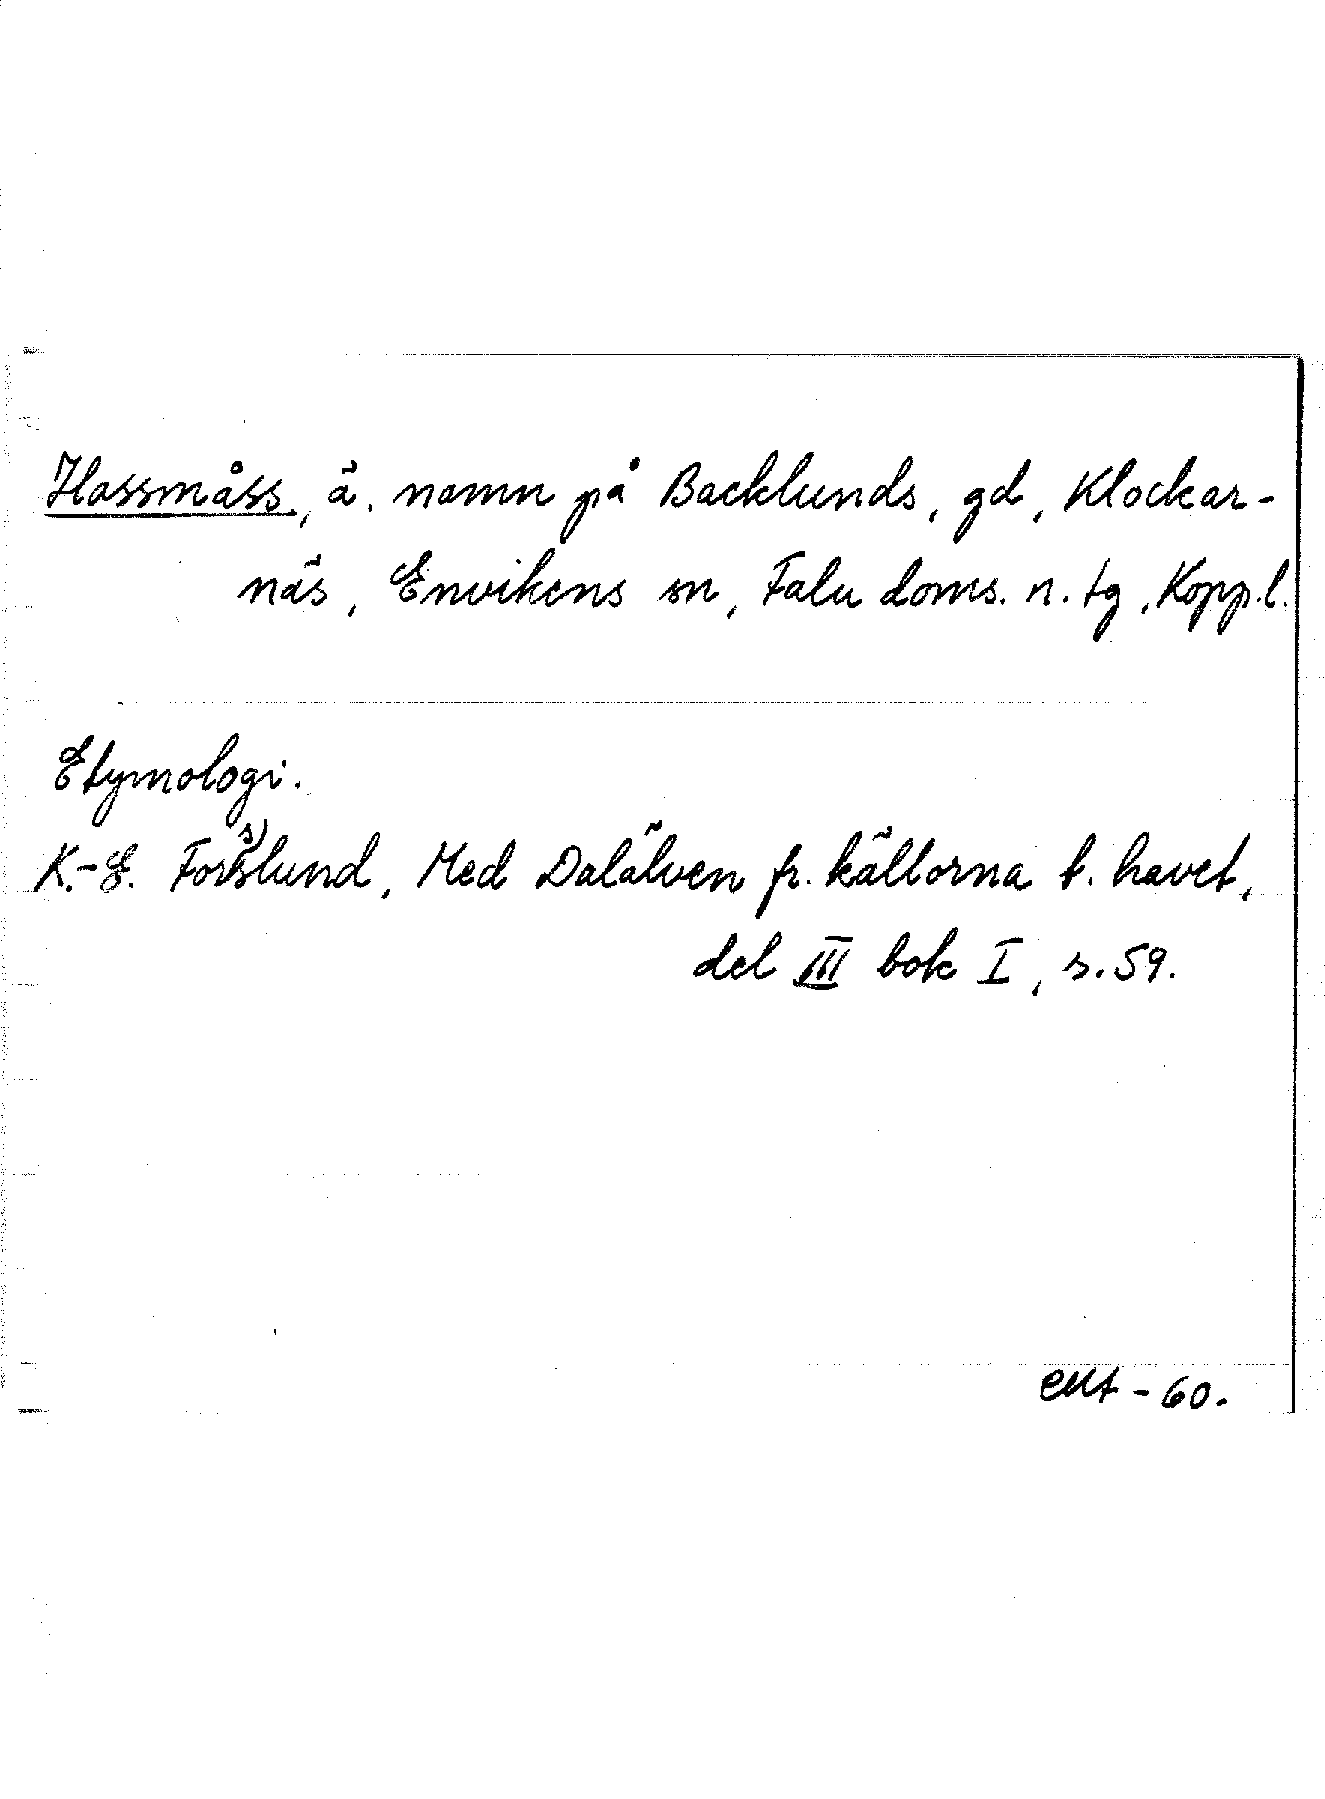 Hassmåss, ä. namn på Backlunds, gd, Klockar-
näs, Envikens sn, Falu doms. n. tg, Kopp.l.
Etymologi.
K.-E. Forsslund, Med Dalälven fr. källorna t. havet,
del III bok I, s. 59.
- 60.